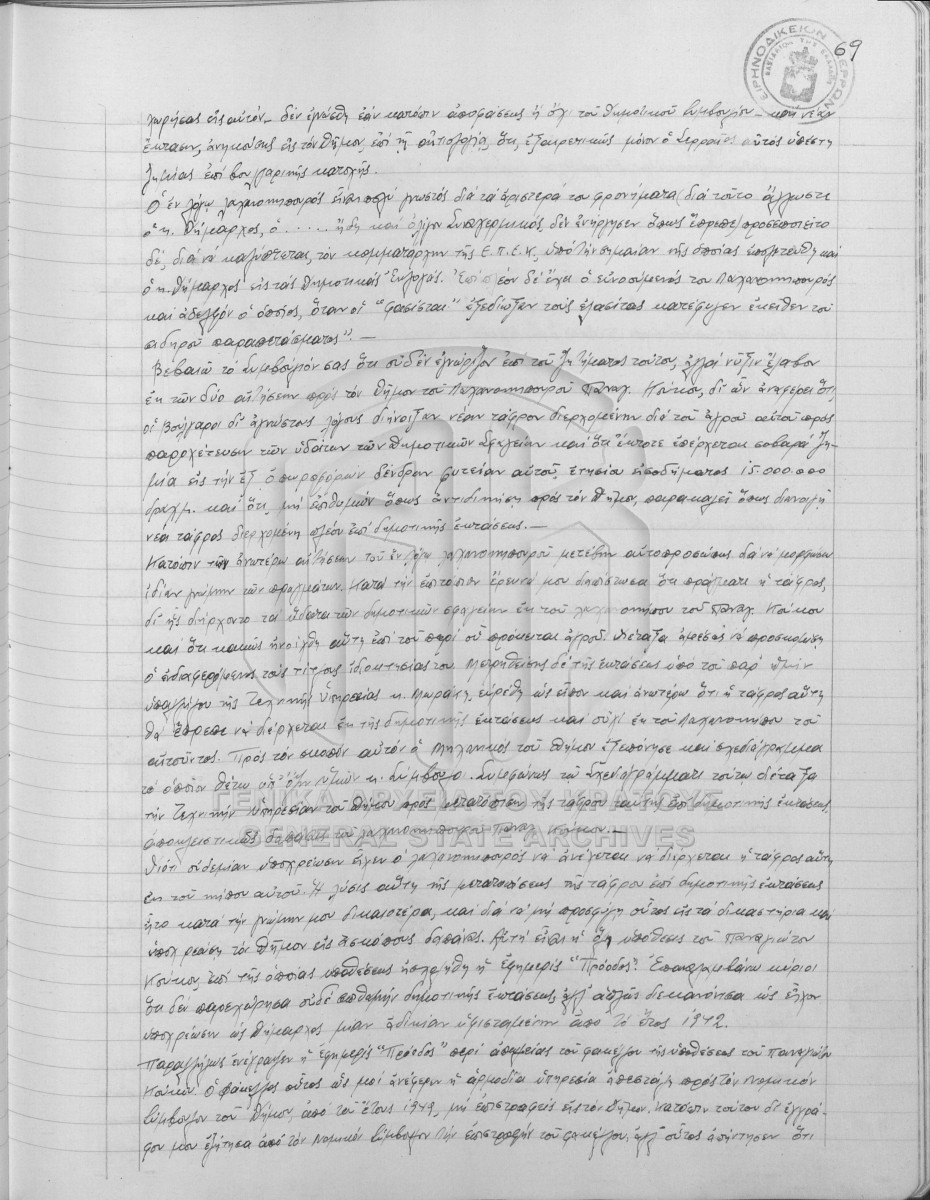 69
ΕΙΡΗΝΟΔΙΚΕΙΟΝ ΣΕΡΡΩΝ
ΒΑΣΙΛΕΙΟΝ ΤΗΣ ΕΛΛΑΔΟΣ
χωρήσας εἰς αὐτόν – δὲν ἐγνώσθη ἐάν κατόπιν ἀποφάσεως ἢ ὄχι τοῦ Δημοτικοῦ Συμβουλίου –
ἔκτασιν, ἀνήκουσαν εἰς τὸν Δῆμον, ἐπὶ τῇ αἰτιολογίᾳ, ὅτι, ἐξαιρετικῶς μόνον ὁ Σερραῖος αὐτὸς ὑπέστη
ζημίας ἐπὶ βουλγαρικῆς κατοχῆς.
Ὁ ἐν λόγῳ λαχανοκηπουρός εἶναι πολύ γνωστός διά τά ἀριστερά του φρονήματα (διά τοῦτο ἄλλωστε
ὁ κ. Δήμαρχος, ὁ ...... ἤδη καί ὀλίγον Συναγερμικός, δέν ἐνήργησεν ὅπως ἔπρεπε) προσεποιεῖτο
δέ, διά νά καλύπτεται, τόν κομματάρχην τῆς Ε.Π.Ε.Κ. ὑπό τήν σημαίαν τῆς ὁποίας ἐπολιτεύθη καί
ὁ κ. Δήμαρχος εἰς τάς Δημοτικάς Ἐκλογάς. Ἐπί πλέον δέ ἔχει ὁ εὐνοούμενός του Λαχανοκηπουρός
καί ἀδελφόν ὁ ὁποῖος, ὅταν οἱ "φασίσται" ἐξεδίωξαν τούς ἐλασίτας κατέφυγεν ἐκεῖθεν τοῦ
σιδηροῦ παραπετάσματος". –
Βεβαιῶ τό Συμβούλιόν σας ὅτι οὐδέν ἐγνώριζον ἐπί τοῦ ζητήματος τούτου, ἀλλά νῦξιν ἔλαβον
ἐκ τῶν δύο αἰτήσεων πρός τόν Δῆμον τοῦ Λαχανοκηπουροῦ Παναγ. Κούκου, δι' ὧν ἀναφέρει ὅτι,
οἱ Βούλγαροι δι' ἀγνώστους λόγους διήνοιξαν νέαν τάφρον διερχομένην διά τοῦ ἀγροῦ αὐτοῦ πρός
παροχέτευσιν τῶν ὑδάτων τῶν Δημοτικῶν Σφαγείων καί ὅτι ἔκτοτε ἐπέρχεται σοβαρά ζη-
μία εἰς τήν ἐξ ὀπωροφόρων δένδρων φυτείαν αὐτοῦ, ἐτησίου εἰσοδήματος 15.000.000
δραχμ. καί ὅτι, μή ἐπιθυμῶν ὅπως ἀντιδικήσῃ πρός τόν Δῆμον, παρακαλεῖ ὅπως διανοιγῇ
νέα τάφρος διερχομένη πλέον ἐπί δημοτικῆς ἐκτάσεως. –
Κατόπιν τῶν ἀνωτέρω αἰτήσεων τοῦ ἐν λόγῳ λαχανοκηπουροῦ μετέβην αὐτοπροσώπως διά νά μορφώσω
ἰδίαν γνώμην τῶν πραγμάτων. Κατά τήν ἐπιτόπιον ἔρευνά μου διεπίστωσα ὅτι πράγματι ἡ τάφρος,
δι' ἧς διήρχοντο τά ὕδατα τῶν δημοτικῶν σφαγείων ἐκ τοῦ λαχανοκήπου τοῦ Παναγ. Κούκου
καί ὅτι κακῶς ἠνοίχθη αὕτη ἐπί τοῦ περί οὗ πρόκειται ἀγροῦ. Διέταξα ἀμέσως νά προσκομίσῃ
ὁ ἐνδιαφερόμενος τούς τίτλους ἰδιοκτησίας του. Μετρηθείσης δέ τῆς ἐκτάσεως ὑπό τοῦ παρ' ἡμῖν
ὑπαλλήλου τῆς Τεχνικῆς Ὑπηρεσίας κ. Μαράκη, εὑρέθη ὡς εἶπον καί ἀνωτέρω ὅτι ἡ τάφρος αὕτη
θά ἔπρεπε νά διέρχεται ἐκ τῆς δημοτικῆς ἐκτάσεως καί οὐχί ἐκ τοῦ Λαχανοκήπου τοῦ
αἰτοῦντος. Πρός τόν σκοπόν αὐτόν ὁ Μηχανικός τοῦ Δήμου ἐξεπόνησε καί σχεδιάγραμμα
τό ὁποῖον θέτω ὑπ' ὄψιν ὑμῶν κ. Σύμβουλοι. Συμφώνως τῷ Σχεδιαγράμματι τούτῳ διέταξα
τήν Τεχνικήν Ὑπηρεσίαν τοῦ Δήμου πρός μετατόπισιν τῆς τάφρου ταύτης ἐπί δημοτικῆς ἐκτάσεως,
ἀποκλειστικαῖς δαπάναις τοῦ λαχανοκηπουροῦ Παναγ. Κούκου. –
Διότι οὐδεμίαν ὑποχρέωσιν εἶχεν ὁ λαχανοκηπουρός νά ἀνέχεται νά διέρχεται ἡ τάφρος αὕτη
ἐκ τοῦ κήπου αὐτοῦ. Ἡ λύσις αὕτη τῆς μετατοπίσεως τῆς τάφρου ἐπί δημοτικῆς ἐκτάσεως
ἦτο κατά τήν γνώμην μου δικαιοτέρα, καί διά νά μή προσφύγῃ οὗτος εἰς τά δικαστήρια καί
ὑποχρεώσῃ τόν Δῆμον εἰς ἀσκόπους δαπάνας. Αὕτη εἶναι ἡ ὅλη ὑπόθεσις τοῦ Παναγιώτου
Κούκου, ἐπί τῆς ὁποίας ὑποθέσεως ἠσχολήθη ἡ ἐφημερίς "Πρόοδος". Ἐπαναλαμβάνω κύριοι
ὅτι δέν παρεχώρησα οὐδέ σπιθαμήν δημοτικῆς ἐκτάσεως, ἀλλ' ἁπλῶς διεκανόνισα ὡς εἶχον
ὑποχρέωσιν ὡς Δήμαρχος μίαν ἀδικίαν ὑφισταμένην ἀπό τό ἔτος 1942.
Παραλλήλως ἐνέγραψεν ἡ ἐφημερίς "Πρόοδος" περί ἀπωλείας τοῦ φακέλλου τῆς ὑποθέσεως τοῦ Παναγιώτου
Κούκου. Ὁ φάκελλος οὗτος ὡς μοί ἀνέφερεν ἡ ἁρμοδία ὑπηρεσία ἀπεστάλη πρός τόν Νομικόν
Σύμβουλον τοῦ Δήμου, ἀπό τοῦ ἔτους 1949, μή ἐπιστραφείς εἰς τόν Δῆμον. Κατόπιν τούτου δι' ἐγγρά-
φου μου ἐζήτησα ἀπό τόν Νομικόν Σύμβουλον τήν ἐπιστροφήν τοῦ φακέλλου, ἀλλ' οὗτος ἀπήντησεν ὅτι
ΓΕΝΙΚΑ ΑΡΧΕΙΑ ΤΟΥ ΚΡΑΤΟΥΣ
GENERAL STATE ARCHIVES